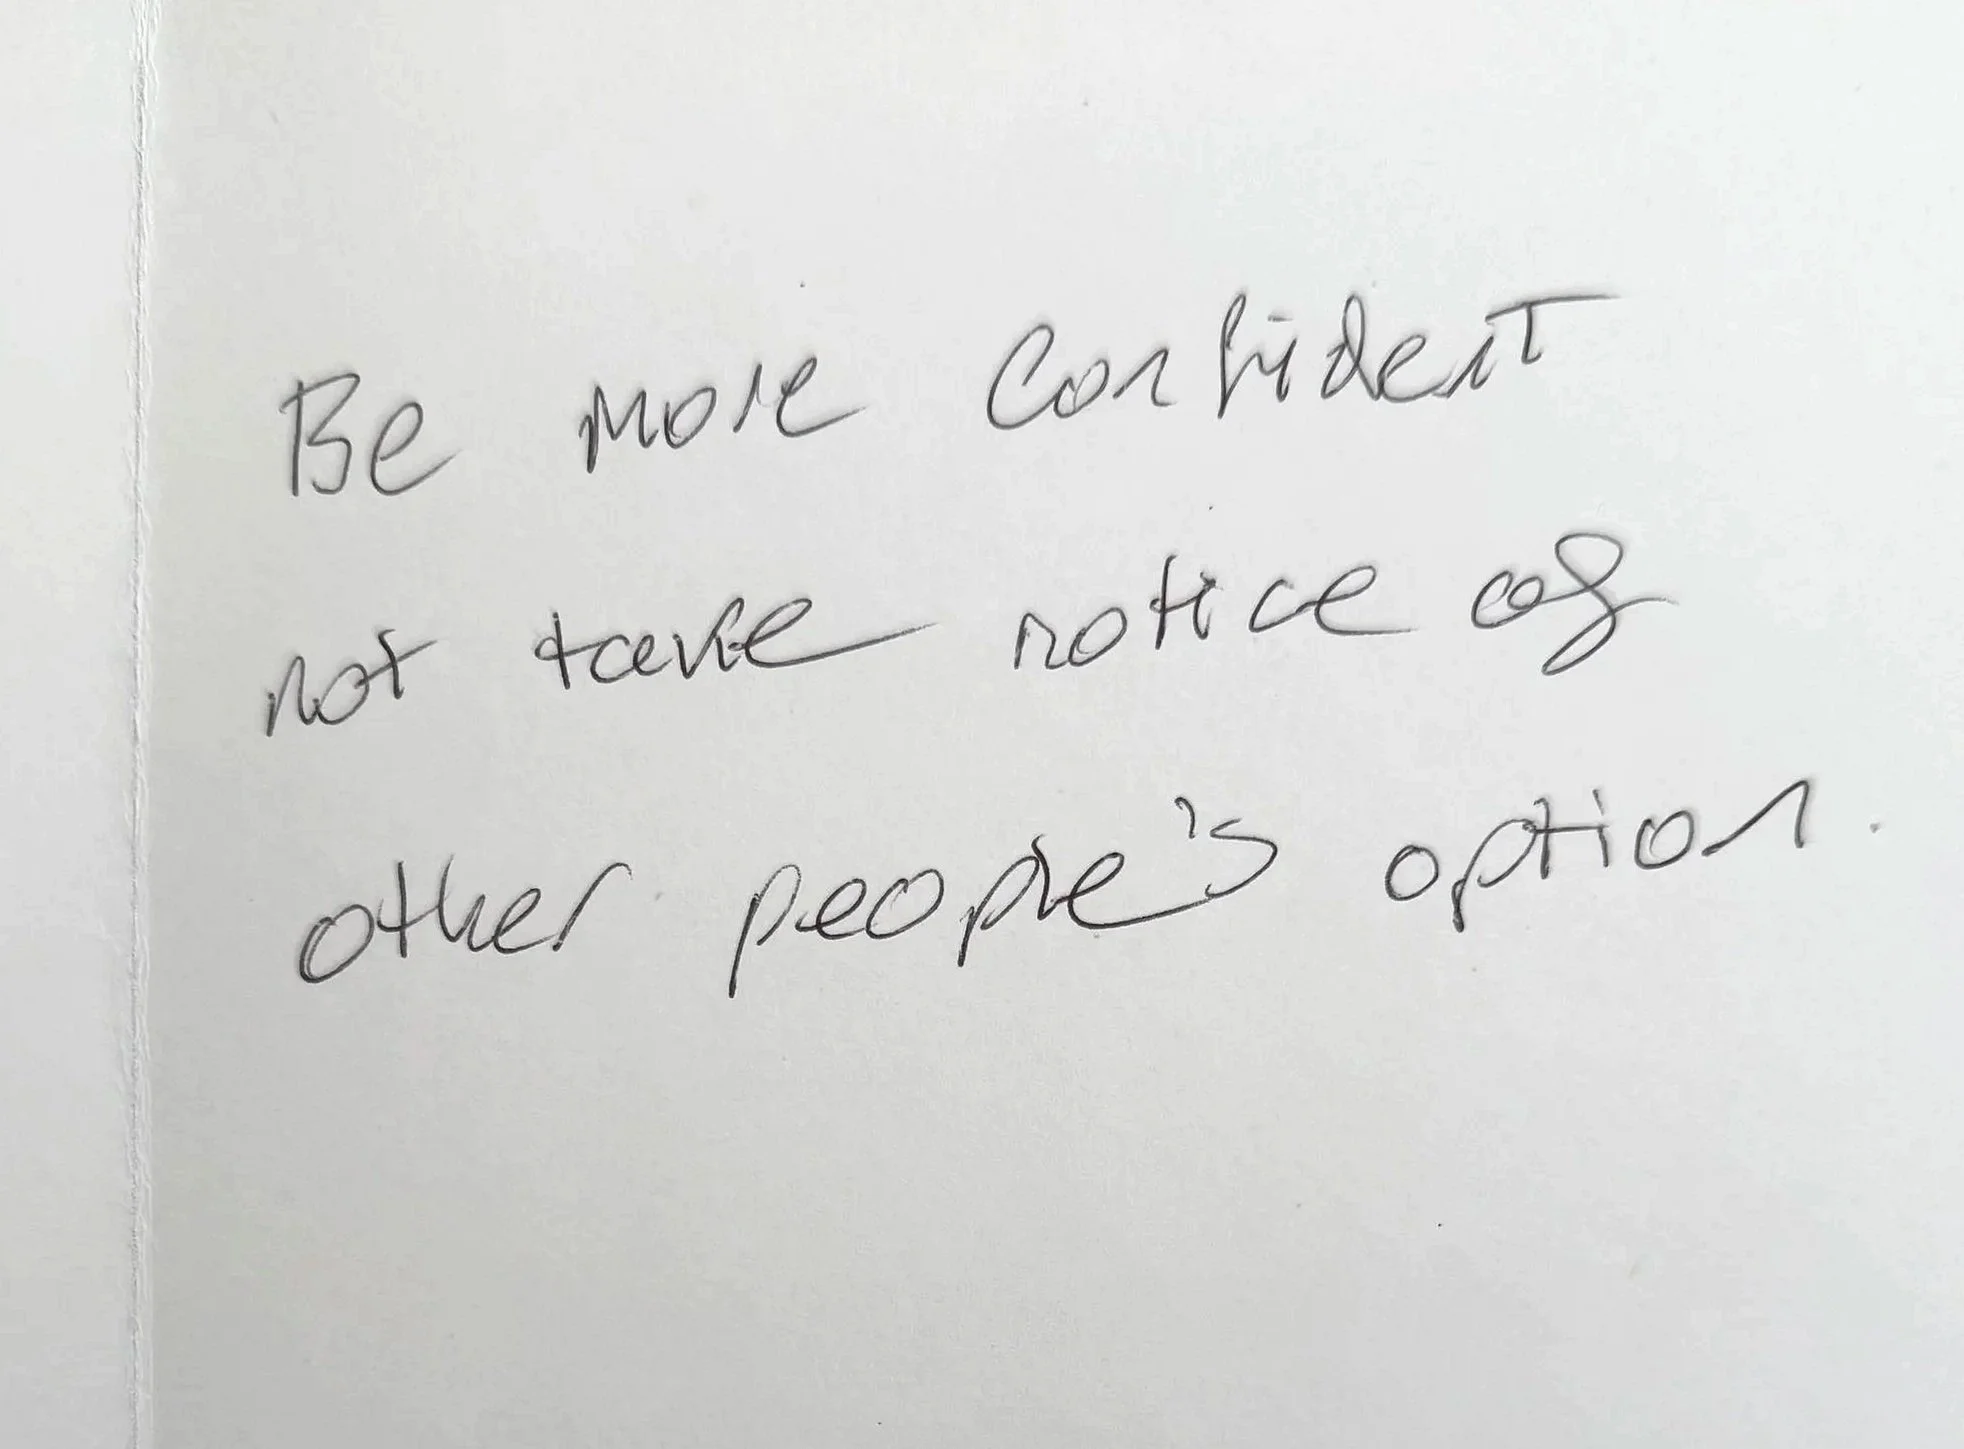 Be more confident
not take notice of
other people's option.